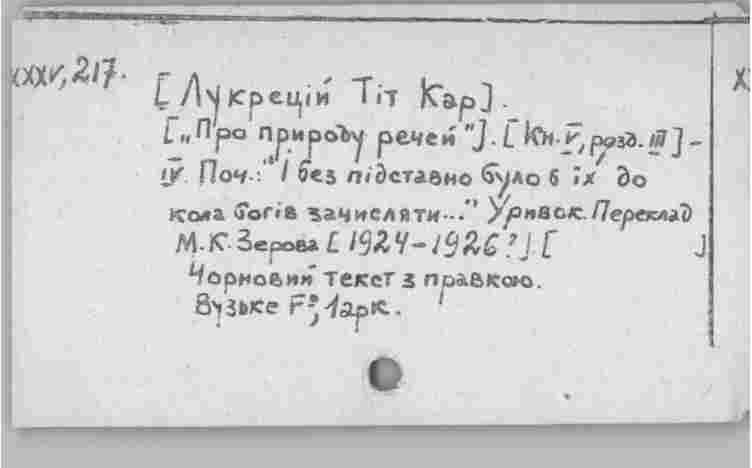 XXXV, 217.
[Лукрецій Тіт Кар].
[„Про природу речей"]. [Кн. V, розд. III] -
IV. Поч.: "І без підставно було б їх до
кола богів зачисляти..." Уривок. Переклад
М. К. Зерова [1924-1926?]. [ ]
Чорновий текст з правкою.
Вузьке F°, 1 арк.
X